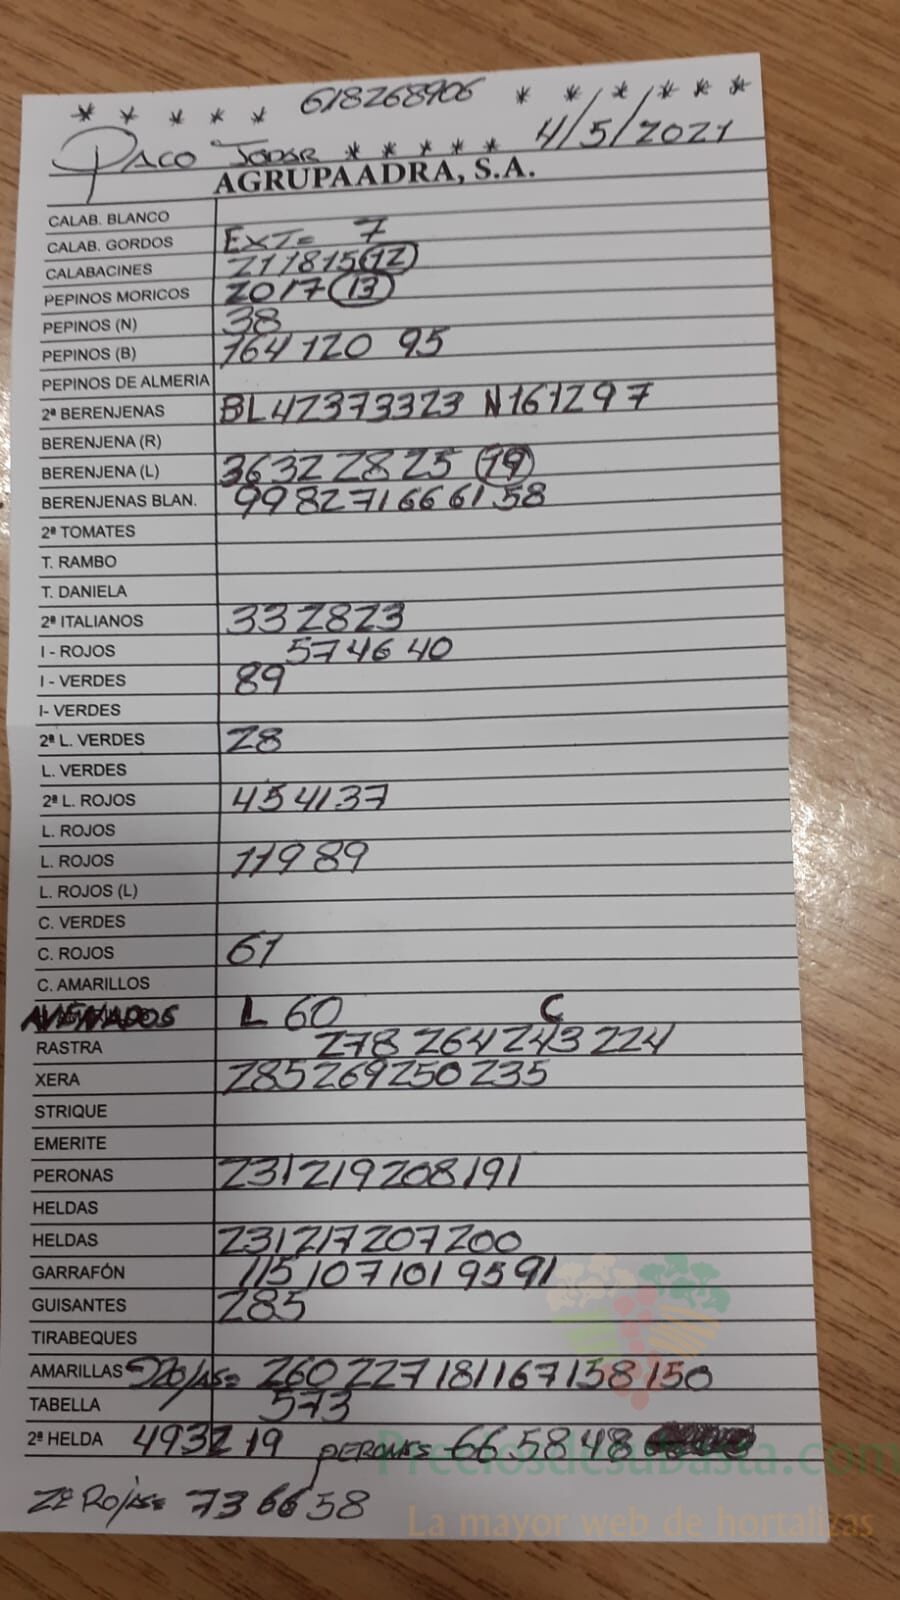 * * * * * 618268906 * * * * * *
PACO JODAR * * * * * 4/5/2021
AGRUPAADRA, S.A.
CALAB. BLANCO
CALAB. GORDOS EXT= 7
CALABACINES 21 18 15 (12)
PEPINOS MORICOS 20 17 (13)
PEPINOS (N) 38
PEPINOS (B) 164 120 95
PEPINOS DE ALMERIA
2ª BERENJENAS BL 42 37 33 23 N 16 12 9 7
BERENJENA (R)
BERENJENA (L) 36 32 28 25 (19)
BERENJENAS BLAN. 99 82 71 66 61 58
2ª TOMATES
T. RAMBO
T. DANIELA
2ª ITALIANOS 33 28 23
I - ROJOS 57 46 40
I - VERDES 89
I- VERDES
2ª L. VERDES 28
L. VERDES
2ª L. ROJOS 45 41 37
L. ROJOS
L. ROJOS 119 89
L. ROJOS (L)
C. VERDES
C. ROJOS 61
C. AMARILLOS
AVENADOS L 60 C
RASTRA 278 264 243 224
XERA 285 269 250 235
STRIQUE
EMERITE
PERONAS 231 219 208 191
HELDAS
HELDAS 231 217 207 200
GARRAFÓN 115 107 101 95 91
GUISANTES 285
TIRABEQUES
AMARILLAS ROJAS= 260 227 181 167 158 150
TABELLA 573
2ª HELDA 49 32 19 PERONAS= 66 58 48
2ª ROJAS= 73 66 58
Preciosdesubasta.com
La mayor web de hortalizas